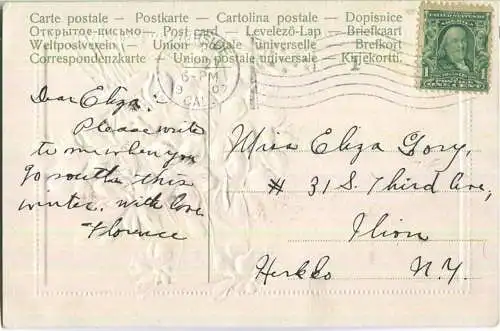 Carte postale - Postkarte - Cartolina postale - Dopisnice
Открытое-письмо - Post card - Levelező-Lap - Briefkaart
Weltpostverein - Union postale universelle - Brefkort
Correspondenzkarte + Union postale universale - Kirjekortti.
6-PM
CAL.
1
ONE CENT
Dear Eliza:-
Please write
to me when you
go south this
winter. with love
Florence
Miss Eliza Gory,
# 31 S. Third Ave,
Ilion
Herkko N.Y.